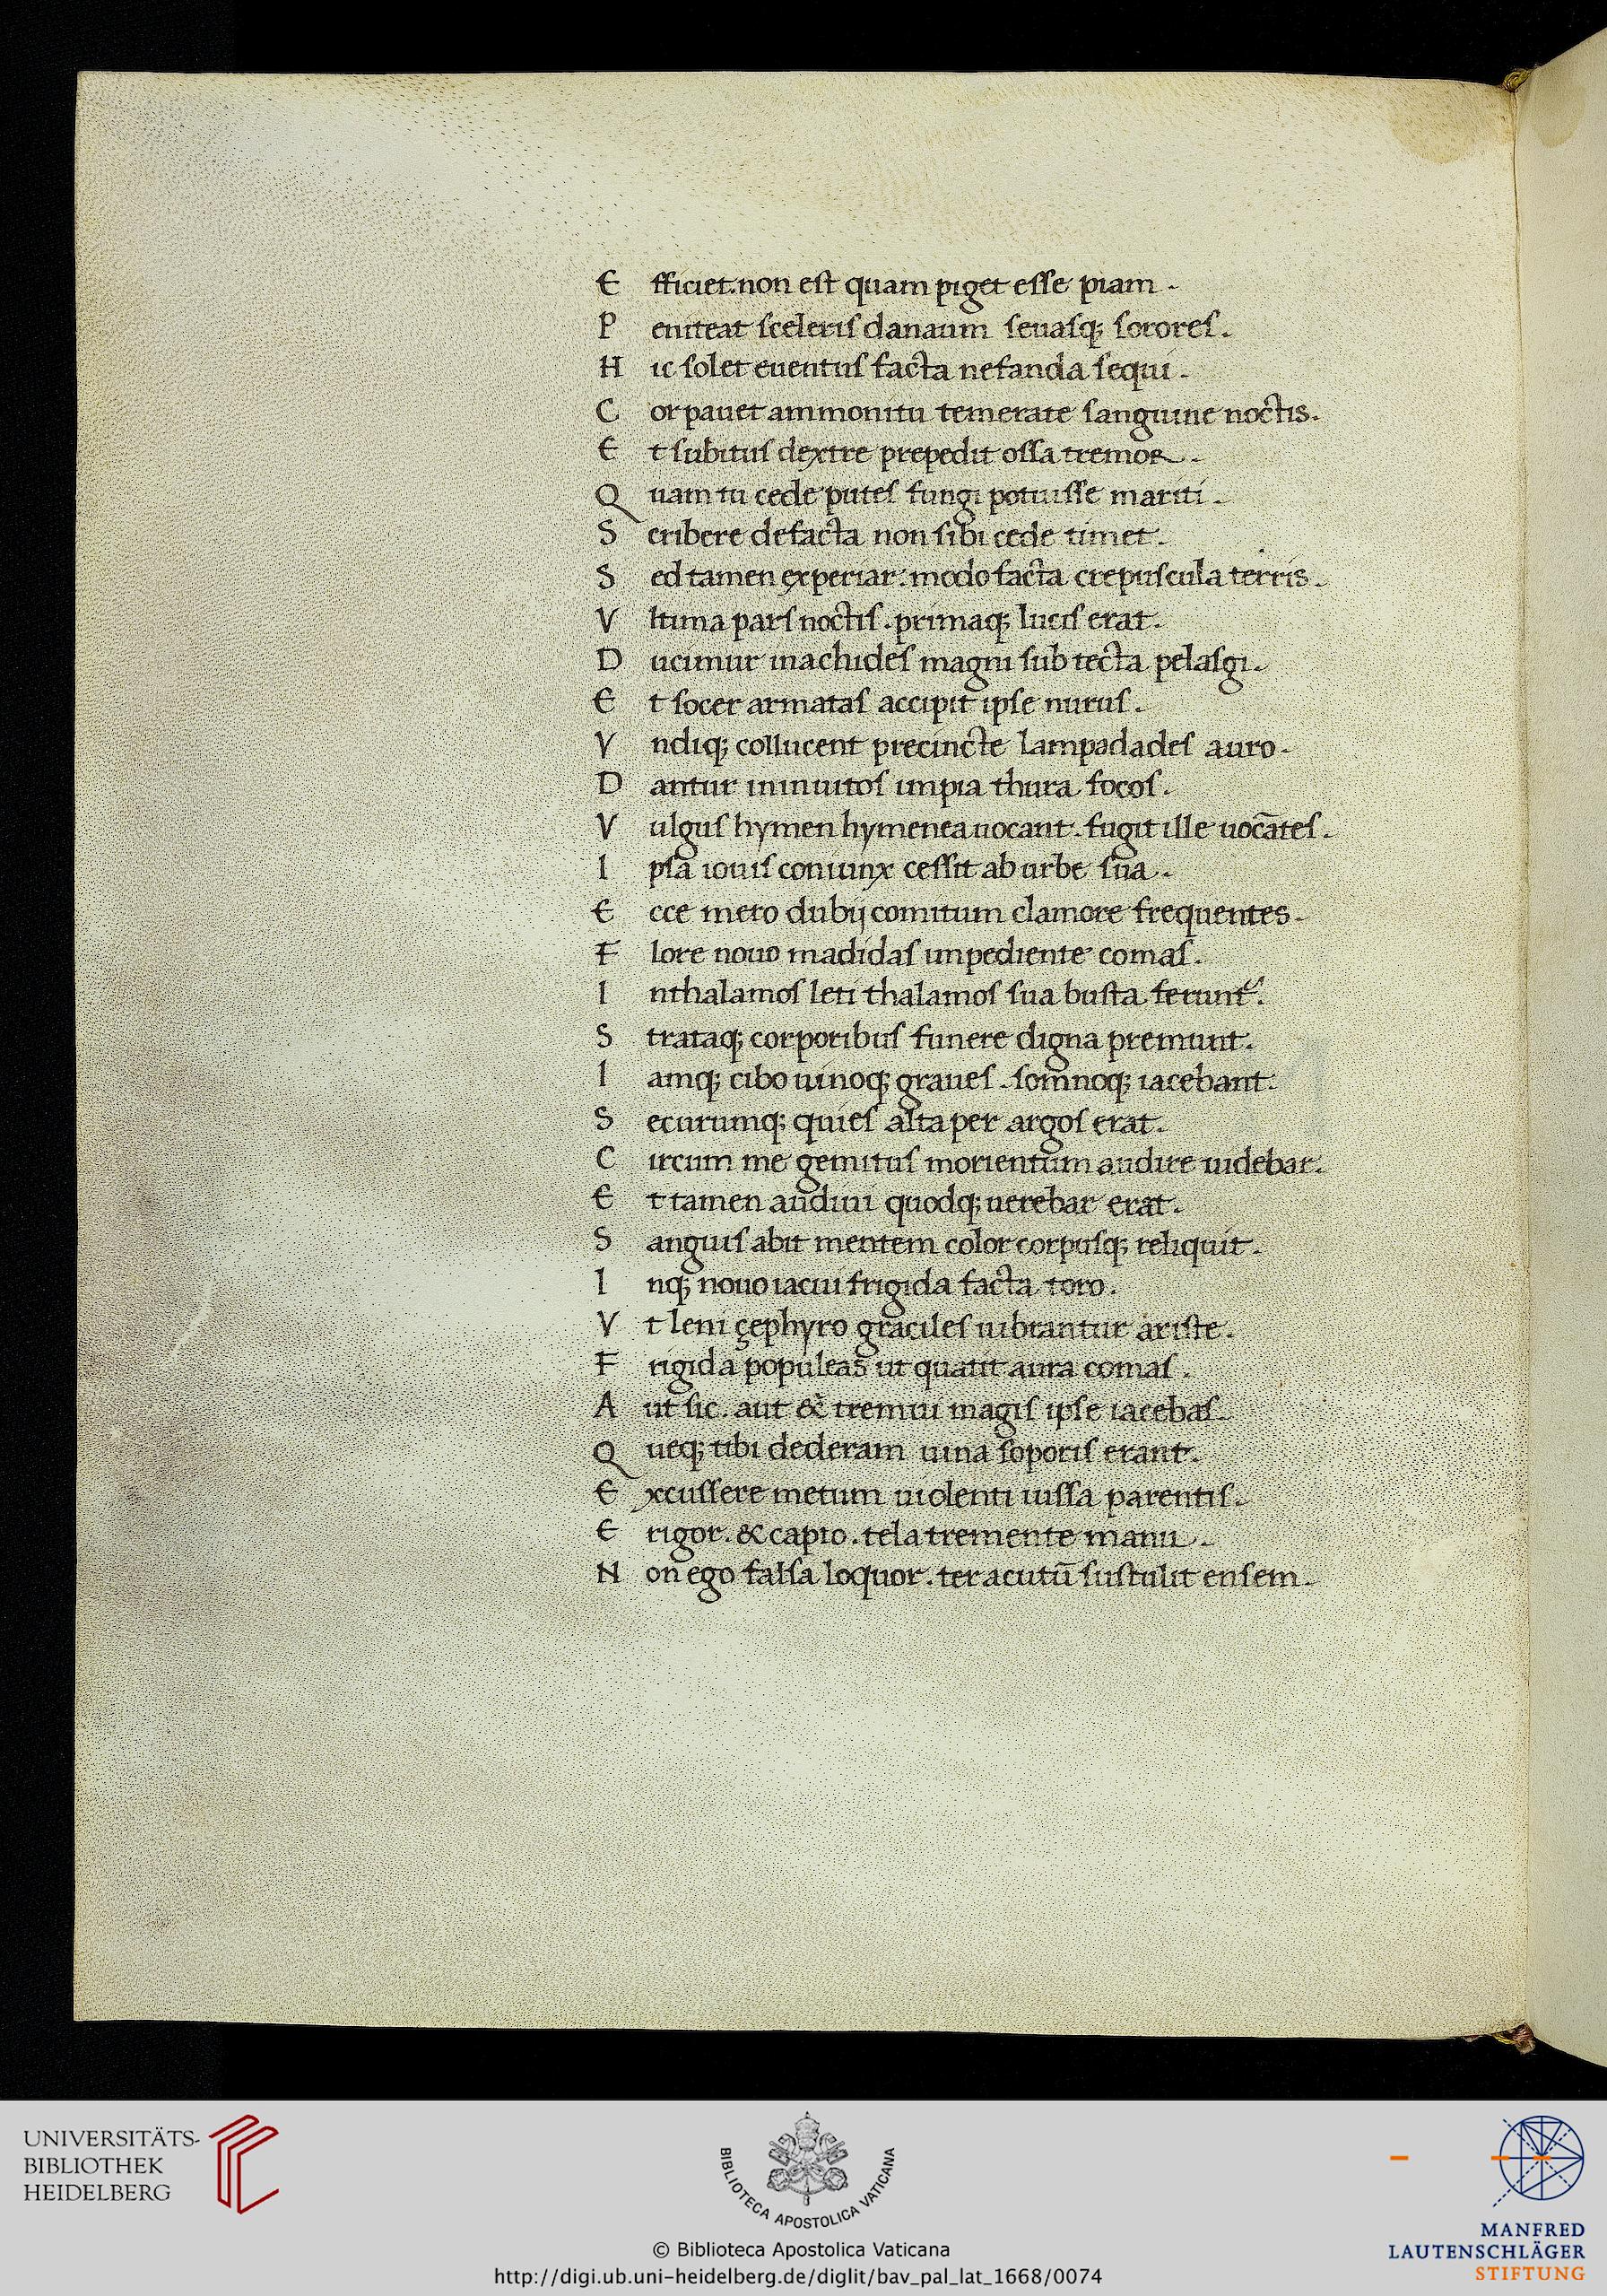 E fficiet. non est quam piget esse piam.
P eniteat sceleris danaum seuasq; sorores.
H ic solet euentus facta nefanda sequi.
C or pauet ammonitu temerate sanguine noctis.
E t subitus dextre prepedit ossa tremor.
Q uam tu cede putes fungi potuisse mariti.
S cribere de facta non sibi cede timet.
S ed tamen experiar: modo facta crepuscula terris.
V ltima pars noctis. primaq; lucis erat.
D ucimur inachides magni sub tecta pelasgi.
E t socer armatas accipit ipse nurus.
V ndiq; collucent precincte lampadades auro.
D antur in inuitos impia thura focos.
V ulgus hymen hymenea uocant. fugit ille uocātes.
I psa iouis coniunx cessit ab urbe sua.
E cce mero dubij comitum clamore frequentes.
F lore nouo madidas impediente comas.
I nthalamos leti thalamos sua busta ferunt᷒.
S trataq; corporibus funere digna premunt.
I amq; cibo uinoq; graues. somnoq; iacebant.
S ecurumq; quies alta per argos erat.
C ircum me gemitus morientum audire uidebar.
E t tamen audiui quodq; uerebar erat.
S anguis abit mentem color corpusq; reliquit.
I nq; nouo iacui frigida facta toro.
V t leni çephyro graciles uibrantur ariste.
F rigida populeas ut quatit aura comas.
A ut sic. aut & tremui magis ipse iacebas.
Q ueq; tibi dederam uina soporis erant.
E xcussere metum uiolenti iussa parentis.
E rigor. & capio. tela tremente manu.
N on ego falsa loquor. ter acutū sustulit ensem.
UNIVERSITÄTS-
BIBLIOTHEK
HEIDELBERG
BIBLIOTECA APOSTOLICA VATICANA
© Biblioteca Apostolica Vaticana
http://digi.ub.uni-heidelberg.de/diglit/bav_pal_lat_1668/0074
MANFRED
LAUTENSCHLÄGER
STIFTUNG